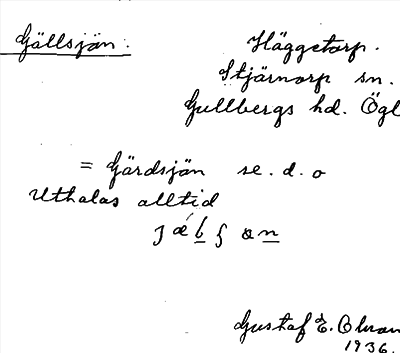 Gällsjön.
Häggetorp.
Stjärnorp sn.
Gullbergs hd. Ögl
= Gärdsjön se. d. o
Uthalas alltid
Gustaf E. Olson
1936.